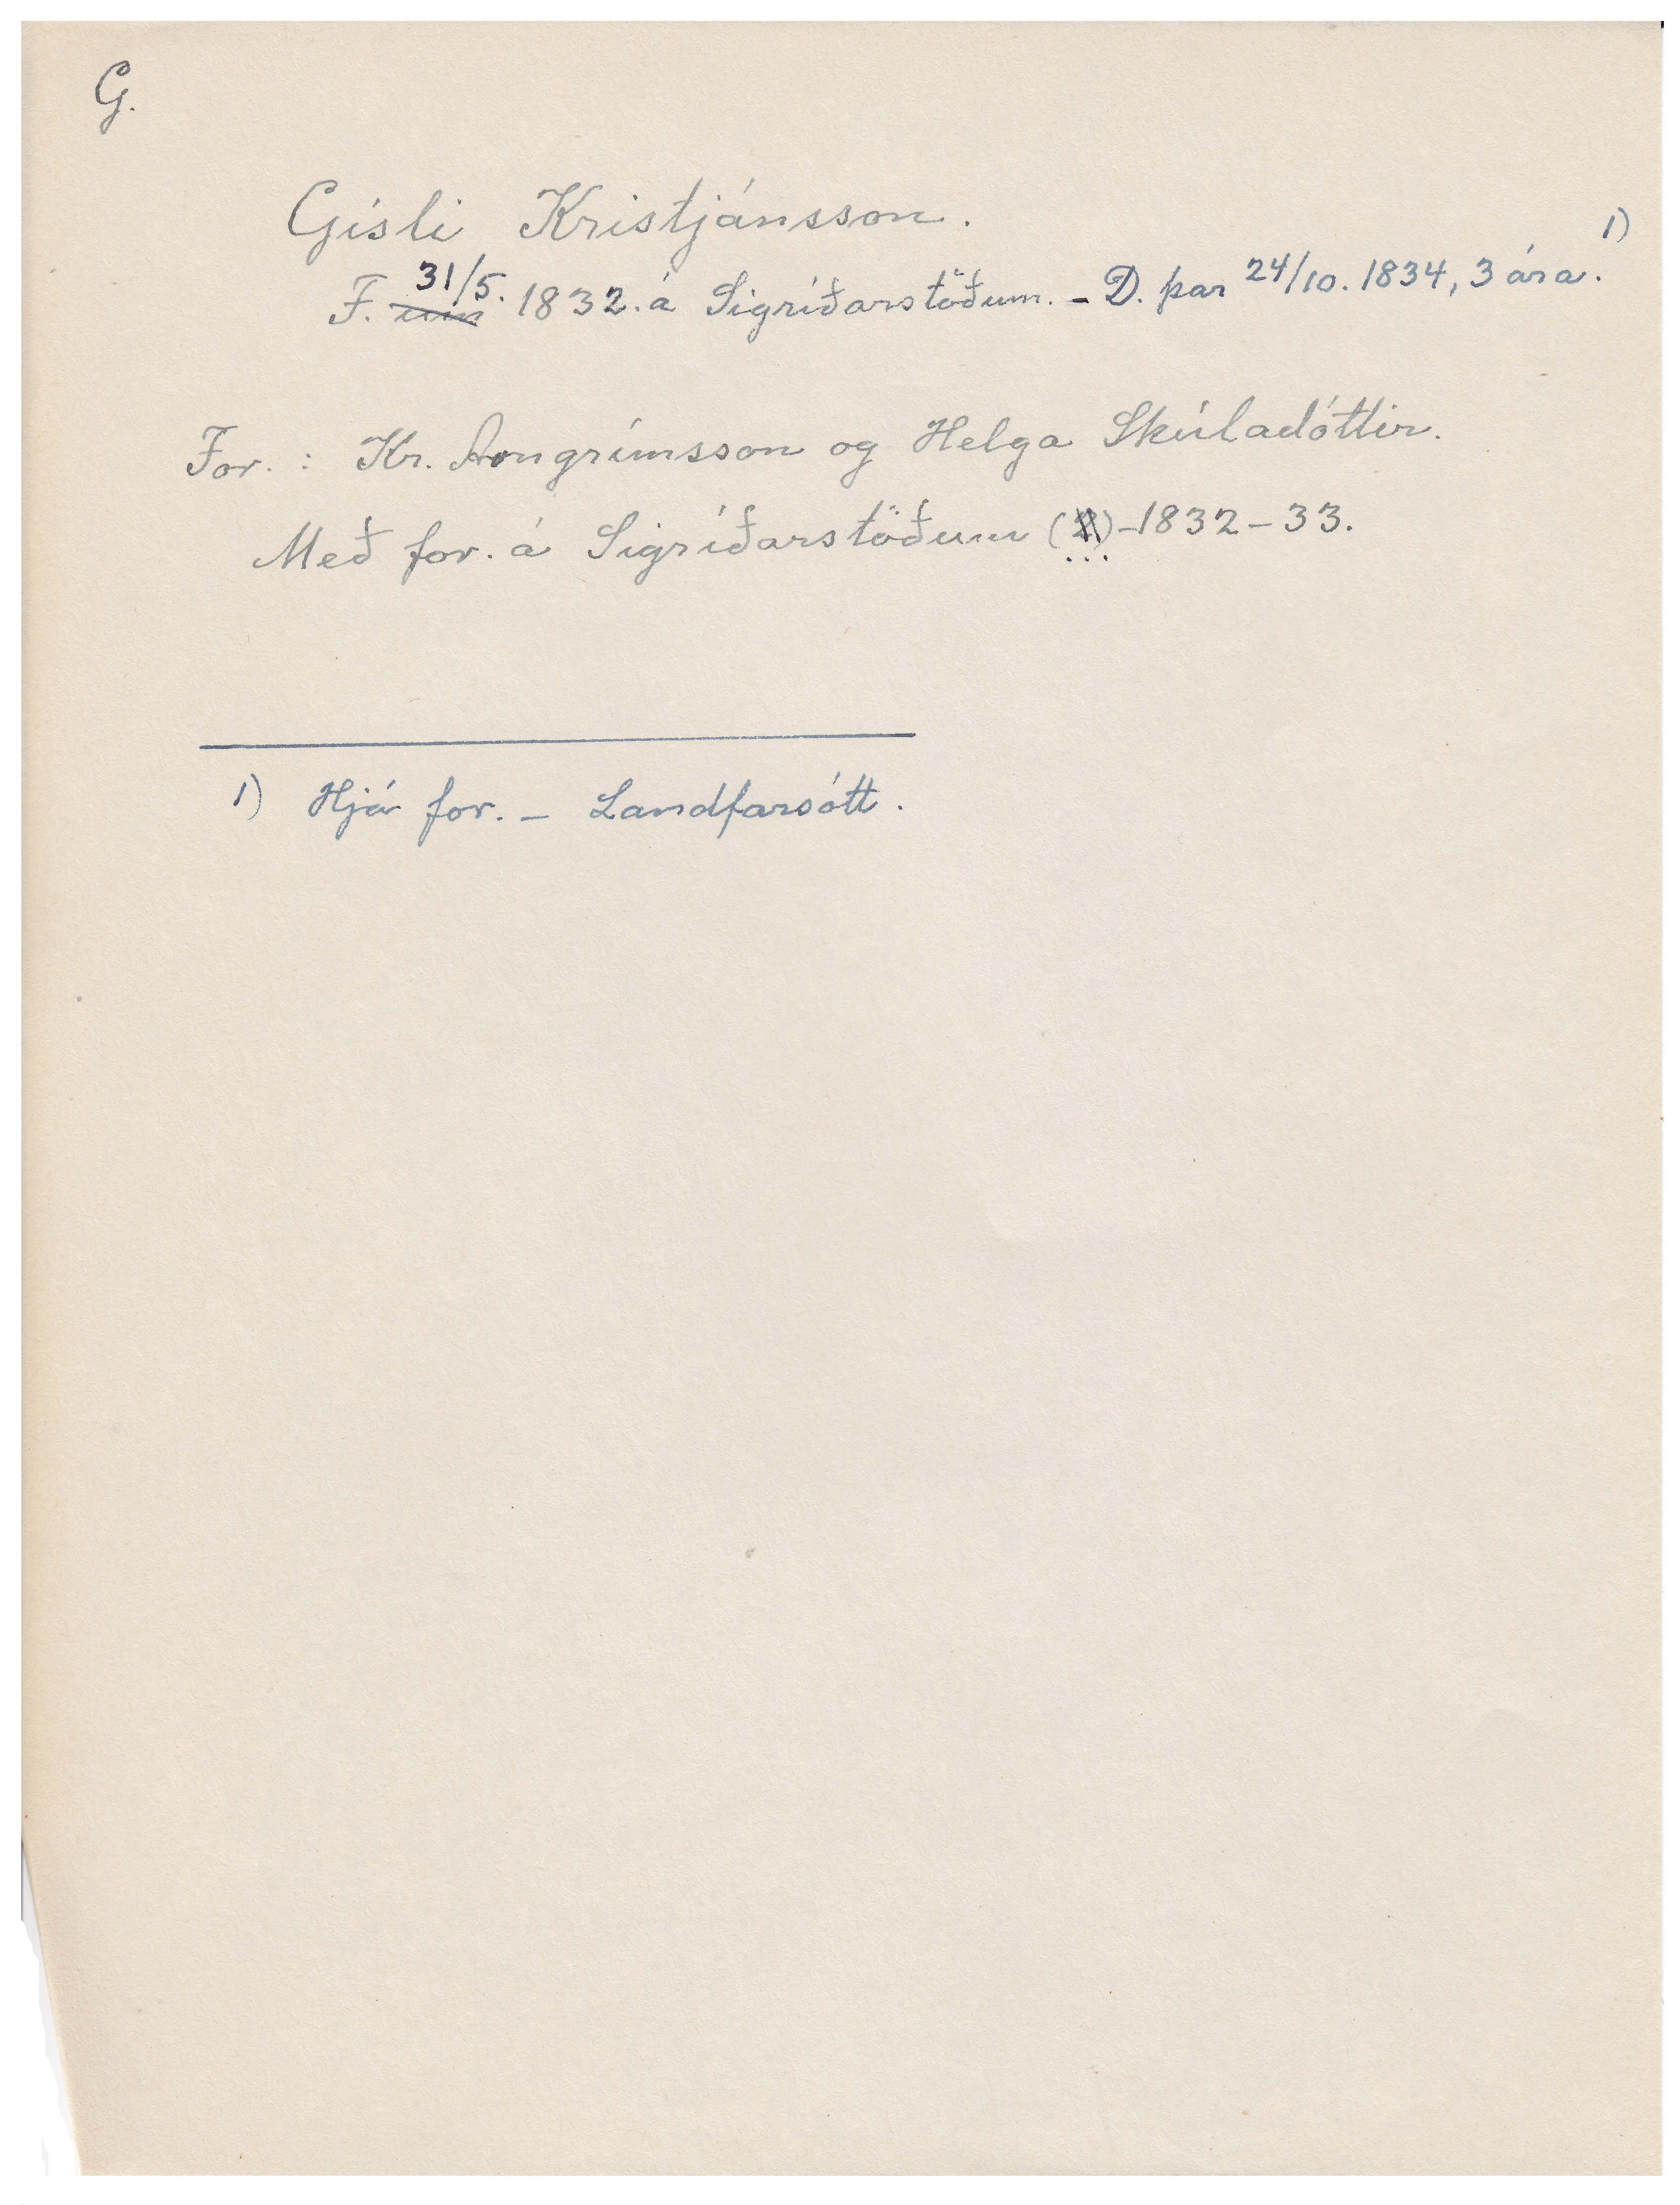 G.
Gísli Kristjánsson.
F. 31/5. 1832. á Sigríðarstöðum. – D. þar 24/10. 1834, 3 ára. 1)
For. : Kr. Arngrímsson og Helga Skúladóttir.
Með for. á Sigríðarstöðum ( ) – 1832 – 33.
1) Hjá for. – Landfarsótt.